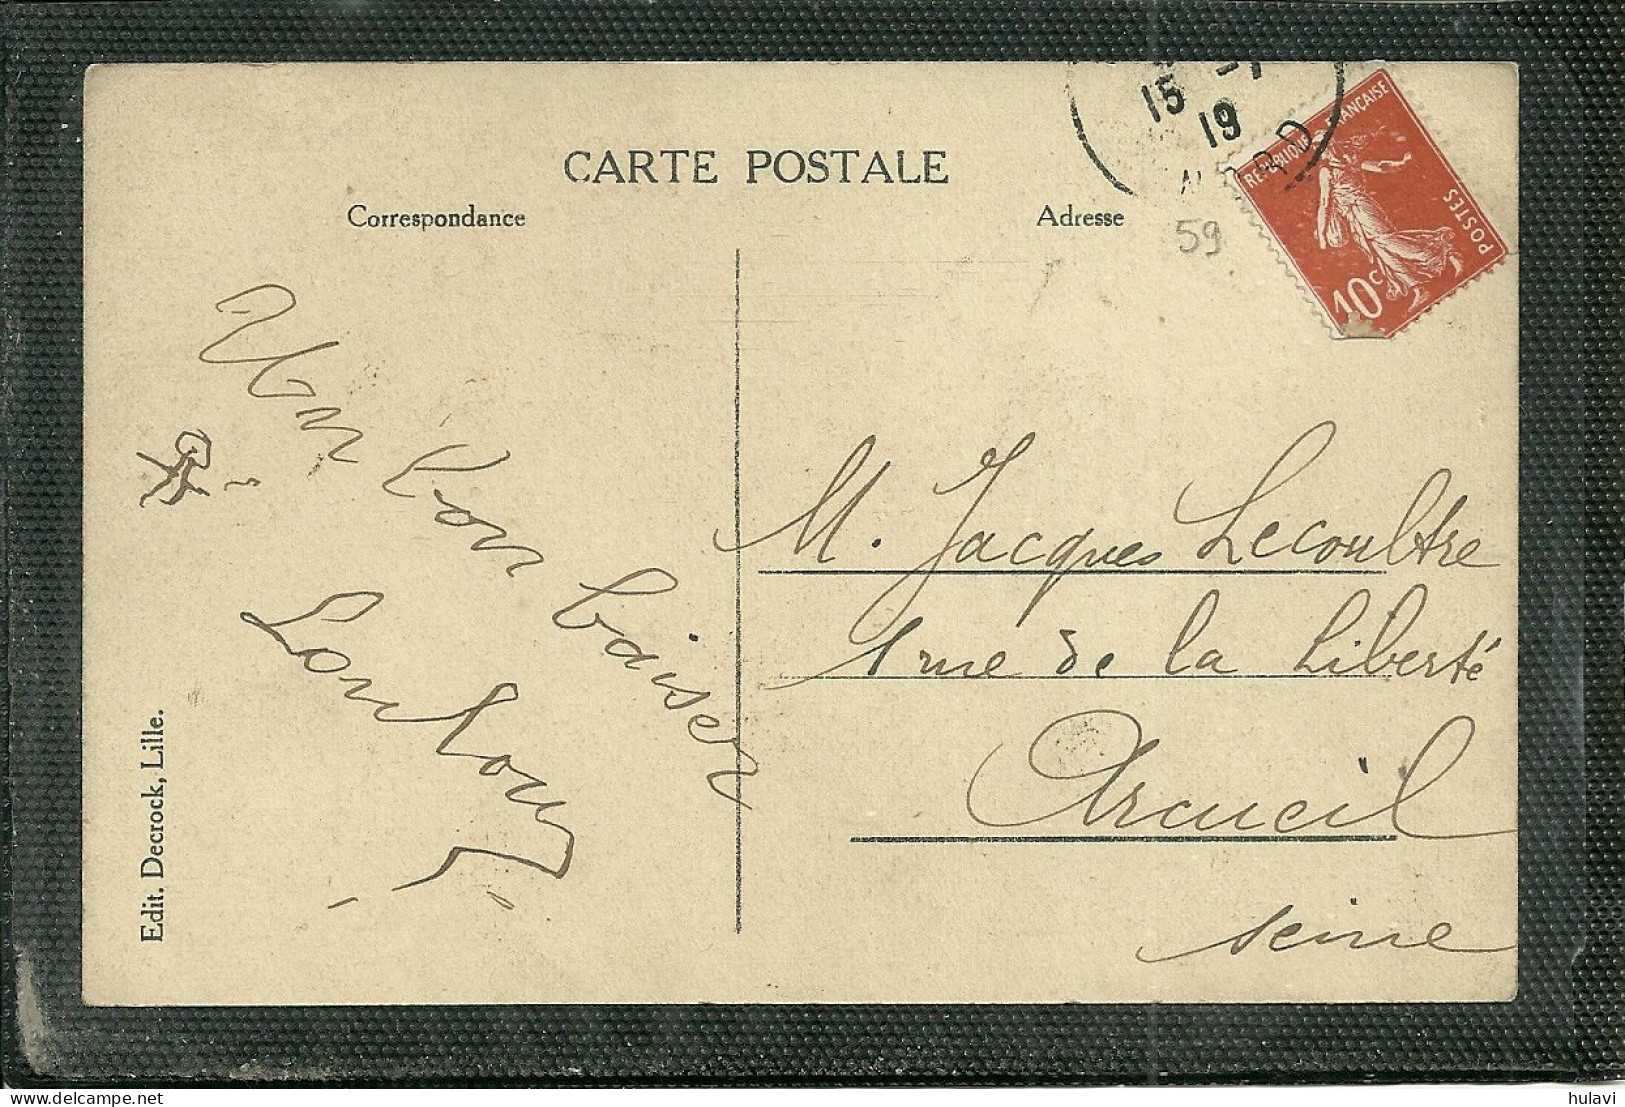 CARTE POSTALE
Correspondance
Adresse
15 -1
19
NORD
59
REPUBLIQUE FRANÇAISE
POSTES
10c
Un bon baiser
M. Jacques Lecoultre
1 rue de la Liberté
Arcueil
Seine
Edit. Decrock, Lille.
hulavi